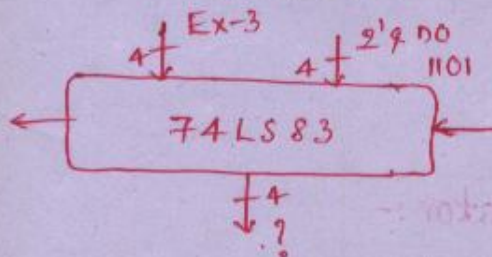 Ex-3
4
4
2's no
1101
74LS83
4
?